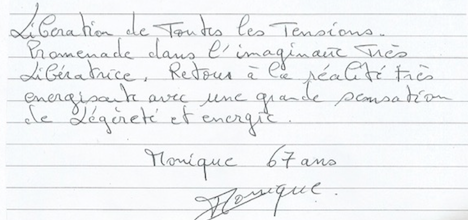 Libération de Toutes les Tensions.
Promenade dans l'imaginaire Très
Libératrice, Retour à la réalité très
energisante avec une grande sensation
de Légèreté et energie.
Monique 67 ans
Monique.